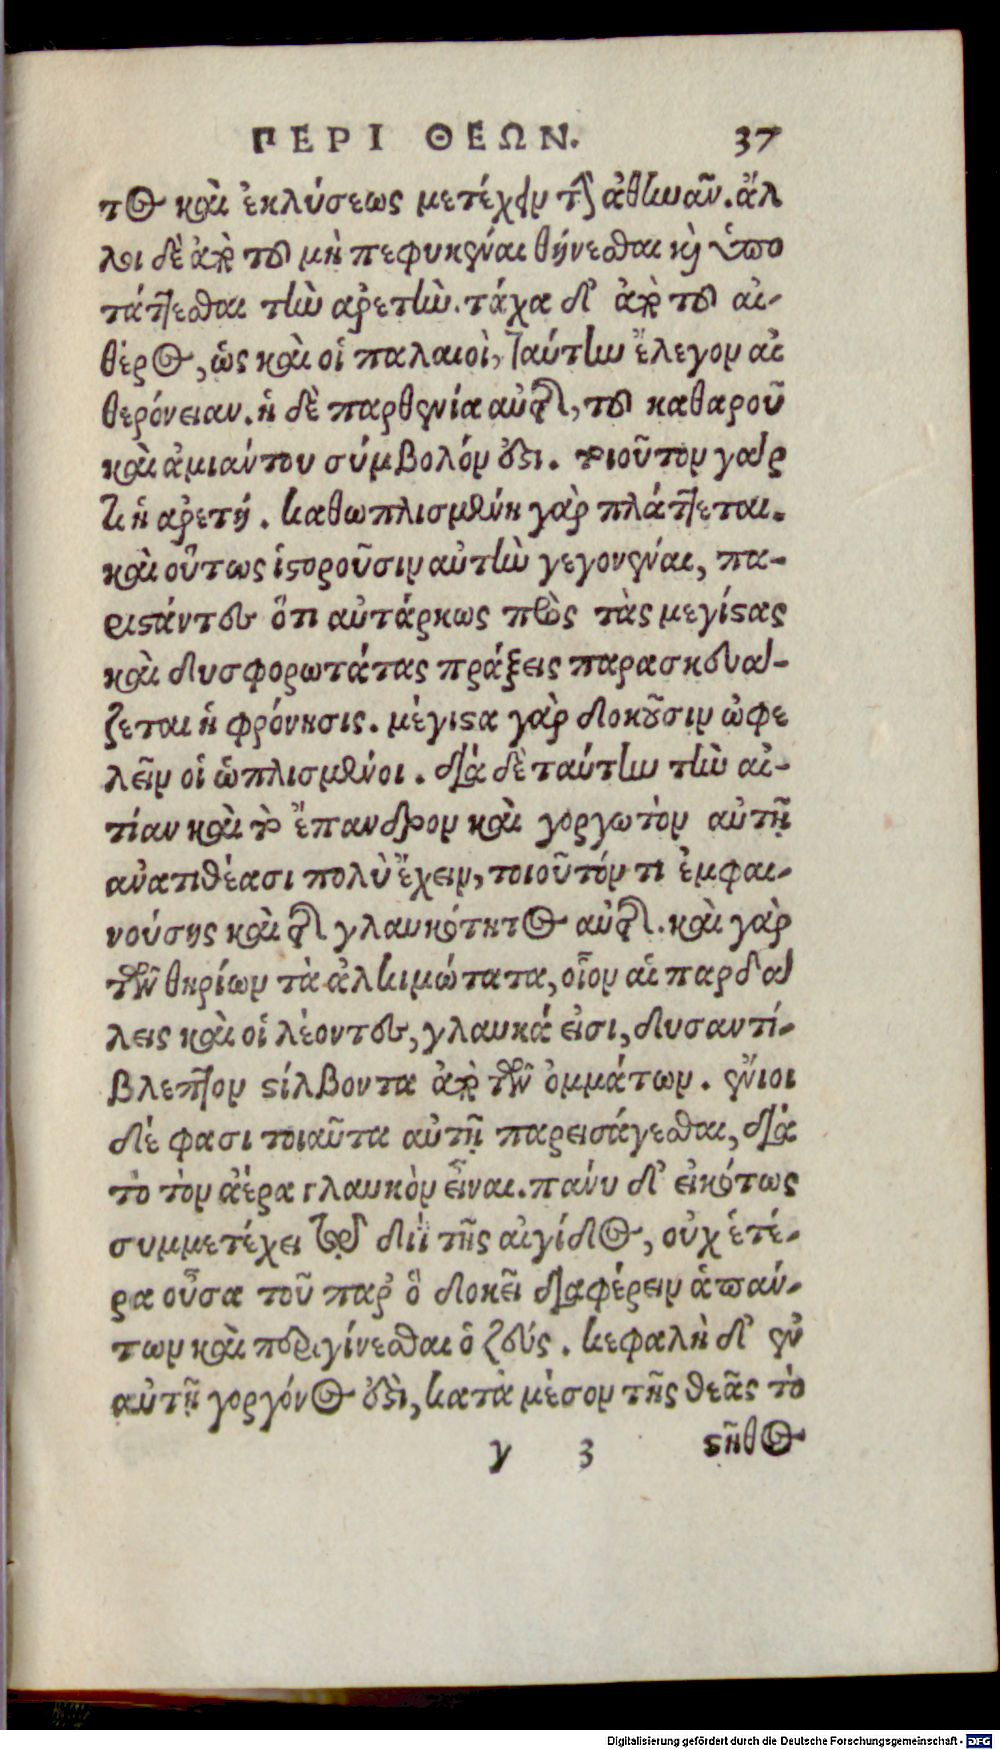 ΠΕΡΙ ΘΕΩΝ. 37
τος καὶ ἐκλύσεως μετέχειν τὴν ἀθηνᾶν. ἄλ
λοι δὲ ἀπὸ τοῦ μὴ πεφυκέναι θήνεσθαι καὶ ὑπο
τάττεσθαι τὴν ἀρετὴν. τάχα δ' ἀπὸ τοῦ αἰ-
θέρος, ὡς καὶ οἱ παλαιοὶ, ταύτην ἔλεγον αἰ
θερόνειαν. ἡ δὲ παρθενία αὐτῆς, τοῦ καθαροῦ
καὶ ἀμιάντου σύμβολόν ἐστι. τοιοῦτον γὰρ
τι ἡ ἀρετή. καθωπλισμένη γὰρ πλάττεται.
καὶ οὕτως ἱστοροῦσιν αὐτὴν γεγονέναι, πα-
ριστάντες ὅτι αὐτάρκως πρὸς τὰς μεγίστας
καὶ δυσφορωτάτας πράξεις παρασκευά-
ζεται ἡ φρόνησις. μέγιστα γὰρ δοκοῦσιν ὠφε
λεῖν οἱ ὡπλισμένοι. διὰ δὲ ταύτην τὴν αἰ-
τίαν καὶ τὸ ἔπανδρον καὶ γοργωπὸν αὐτῇ
ἀνατιθέασι πολὺ ἔχειν, τοιοῦτόν τι ἐμφαι-
νούσης καὶ τῆς γλαυκότητος αὐτῆς. καὶ γὰρ
τῶν θηρίων τὰ ἀλκιμώτατα, οἷον αἱ παρδά
λεις καὶ οἱ λέοντες, γλαυκά εἰσι, δυσαντί-
βλεπτον στίλβοντα ἀπὸ τῶν ὀμμάτων. ἔνιοι
δέ φασι τοιαῦτα αὐτῇ παρεισάγεσθαι, διὰ
τὸ τὸν ἀέρα γλαυκὸν εἶναι. πάνυ δ' εἰκότως
συμμετέχει τῷ διῒ τῆς αἰγίδος, οὐχ ἑτέ-
ρα οὖσα τοῦ παρ' ὃ δοκεῖ διαφέρειν ἁπάν-
των καὶ περιγίνεσθαι ὁ ζεύς. κεφαλὴ δ' ἐν
αὐτῇ γοργόνος ἐστὶ, κατὰ μέσον τῆς θεᾶς τὸ
γ 3 στῆθος
Digitalisierung gefördert durch die Deutsche Forschungsgemeinschaft - DFG